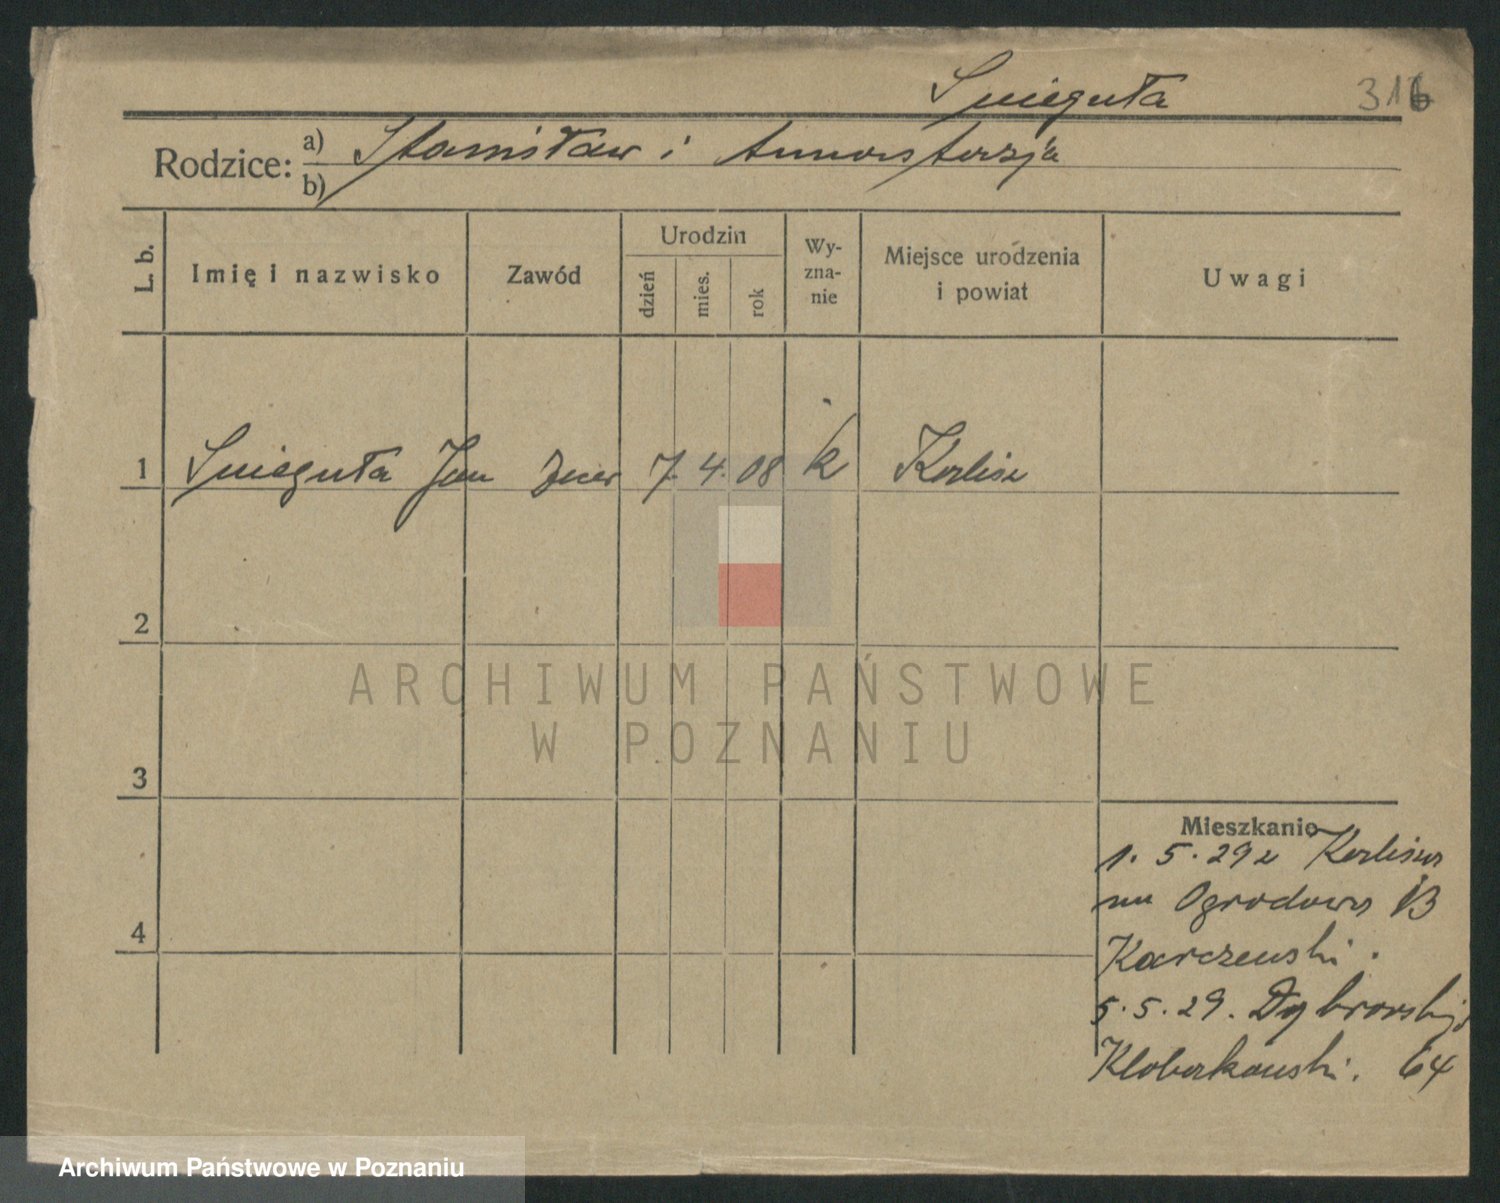 Snieguła 316
Rodzice: a) Stanisław i Anastazja
b)
L. b. Imię i nazwisko Zawód Urodzin dzień mies. rok Wy-zna-nie Miejsce urodzenia i powiat Uwagi
1 Snieguła Jan 7. 4. 08 k Kalisz
2
3
4
Mieszkanie
1. 5. 29 z Kalisza
na Ogrodowa 13
Karczewski.
5. 5. 29. Dąbrowskiego
64
ARCHIWUM PAŃSTWOWE
W POZNANIU
Archiwum Państwowe w Poznaniu